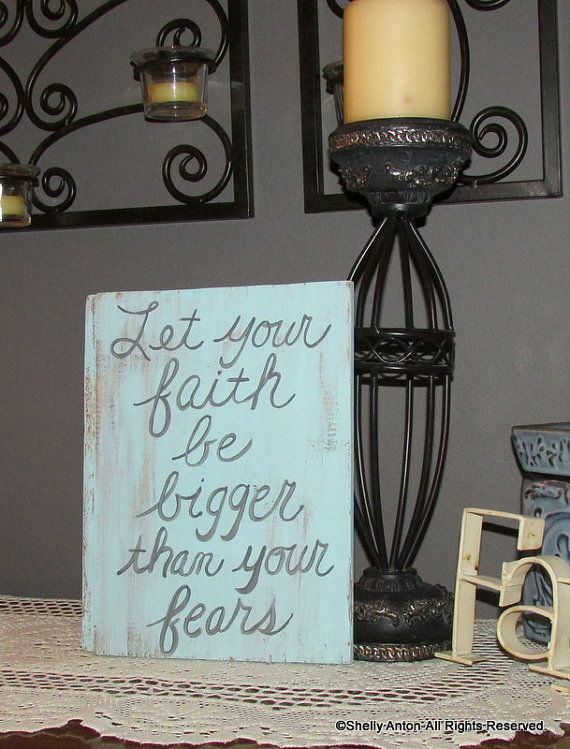 Let your
faith
be
bigger
than your
fears
Fa
©Shelly Anton-All Rights Reserved.